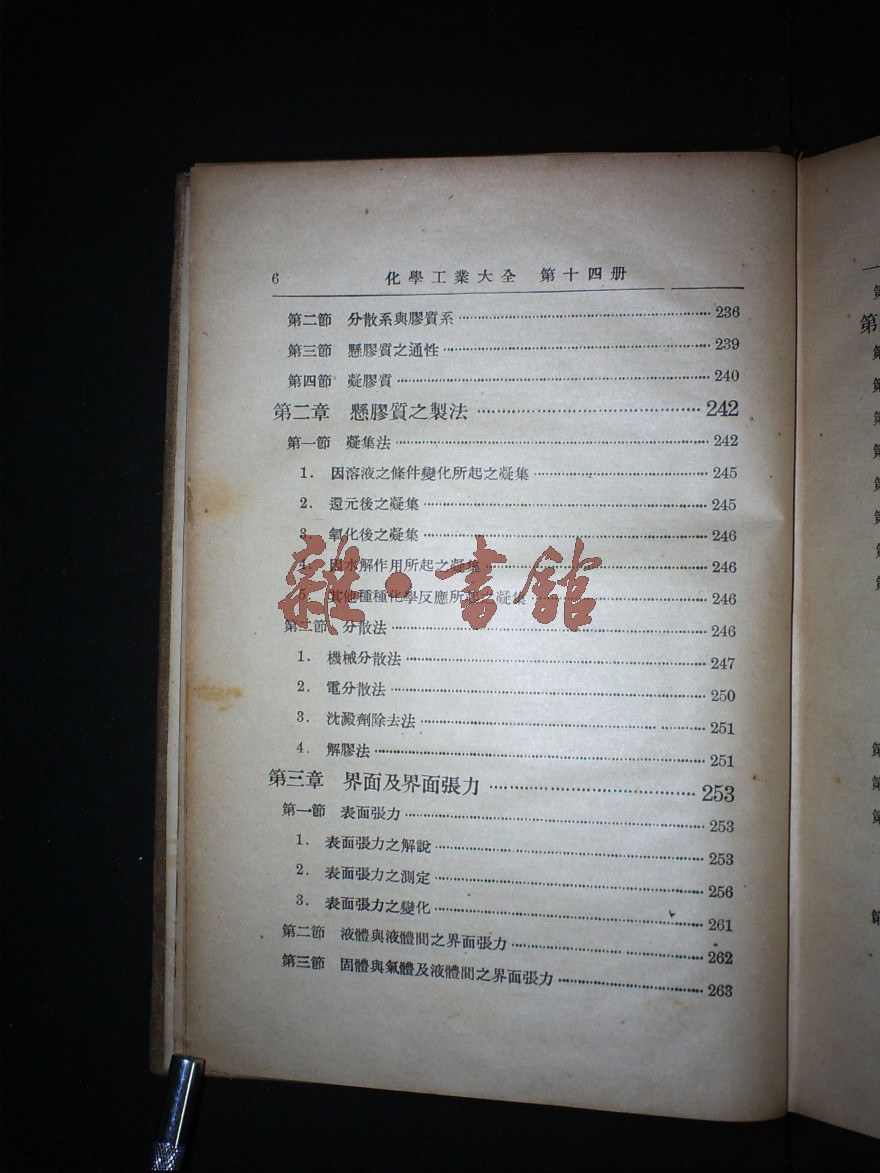 6 化學工業大全 第十四册
第二節 分散系與膠質系 236
第三節 懸膠質之通性 239
第四節 凝膠質 240
第二章 懸膠質之製法 242
第一節 凝集法 242
1. 因溶液之條件變化所起之凝集 245
2. 還元後之凝集 245
3. 氧化後之凝集 246
4. 因水解作用所起之凝集 246
5. 其他種種化學反應所起之凝集 246
第二節 分散法 246
1. 機械分散法 247
2. 電分散法 250
3. 沈澱劑除去法 251
4. 解膠法 251
第三章 界面及界面張力 253
第一節 表面張力 253
1. 表面張力之解說 253
2. 表面張力之測定 256
3. 表面張力之變化 261
第二節 液體與液體間之界面張力 262
第三節 固體與氣體及液體間之界面張力 263
雜·書館